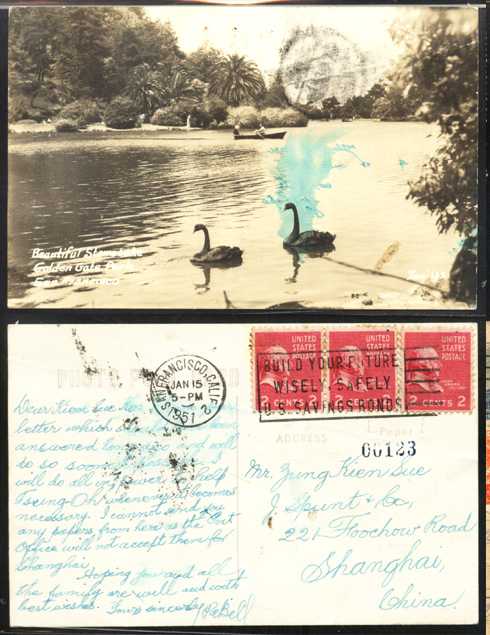 Beautiful Stow Lake
Golden Gate Park
San Francisco
UNITED STATES POSTAGE
UNITED STATES POSTAGE
UNITED STATES POSTAGE
2 CENTS 2
2 CENTS 2
2 CENTS 2
BUILD YOUR FUTURE
WISELY, SAFELY
U.S. SAVINGS BONDS
SAN FRANCISCO, CALIF.
JAN 15
5-PM
1951
2
PHOTO
ADDRESS
00123
Dear Kien Sue
letter which
answered
so so soon
will do all in power help
Tsing
necessary. I cannot send you
any papers from here as the Post
Office will not accept them for
Shanghai.
Hoping you and all
the family are well and with
best wishes. Yours sincerely
Mr. Zung Kien Sue
J. Spunt & Co,
221 Foochow Road
Shanghai,
China.